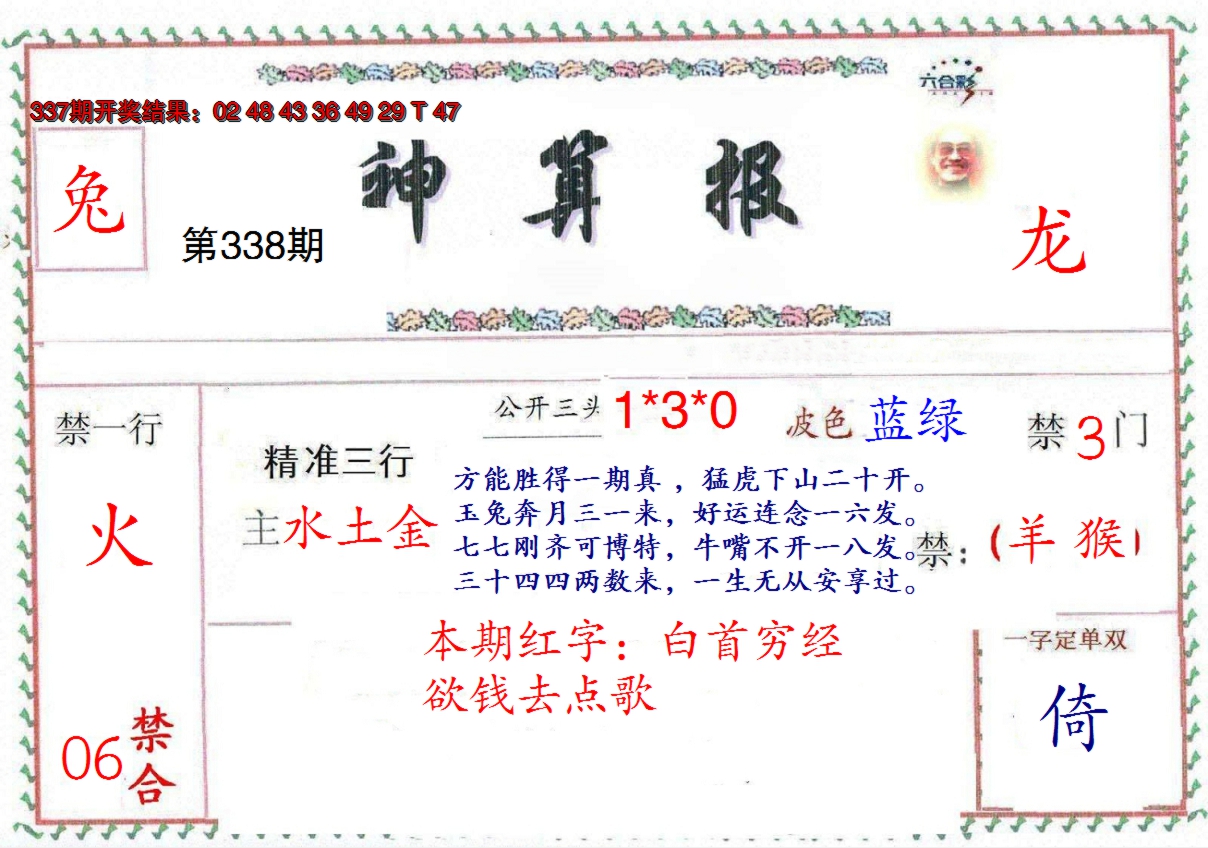 六合彩
337期开奖结果：02 48 43 36 49 29 T 47
神算报
兔
第338期
龙
禁一行
公开三头 1*3*0
波色 蓝绿
禁 3 门
精准三行
主水土金
方能胜得一期真，猛虎下山二十开。
玉兔奔月三一来，好运连念一六发。
七七刚齐可博特，牛嘴不开一八发。
三十四四两数来，一生无从安享过。
禁：（羊 猴）
火
本期红字：白首穷经
欲钱去点歌
一字定单双
倚
06 禁合